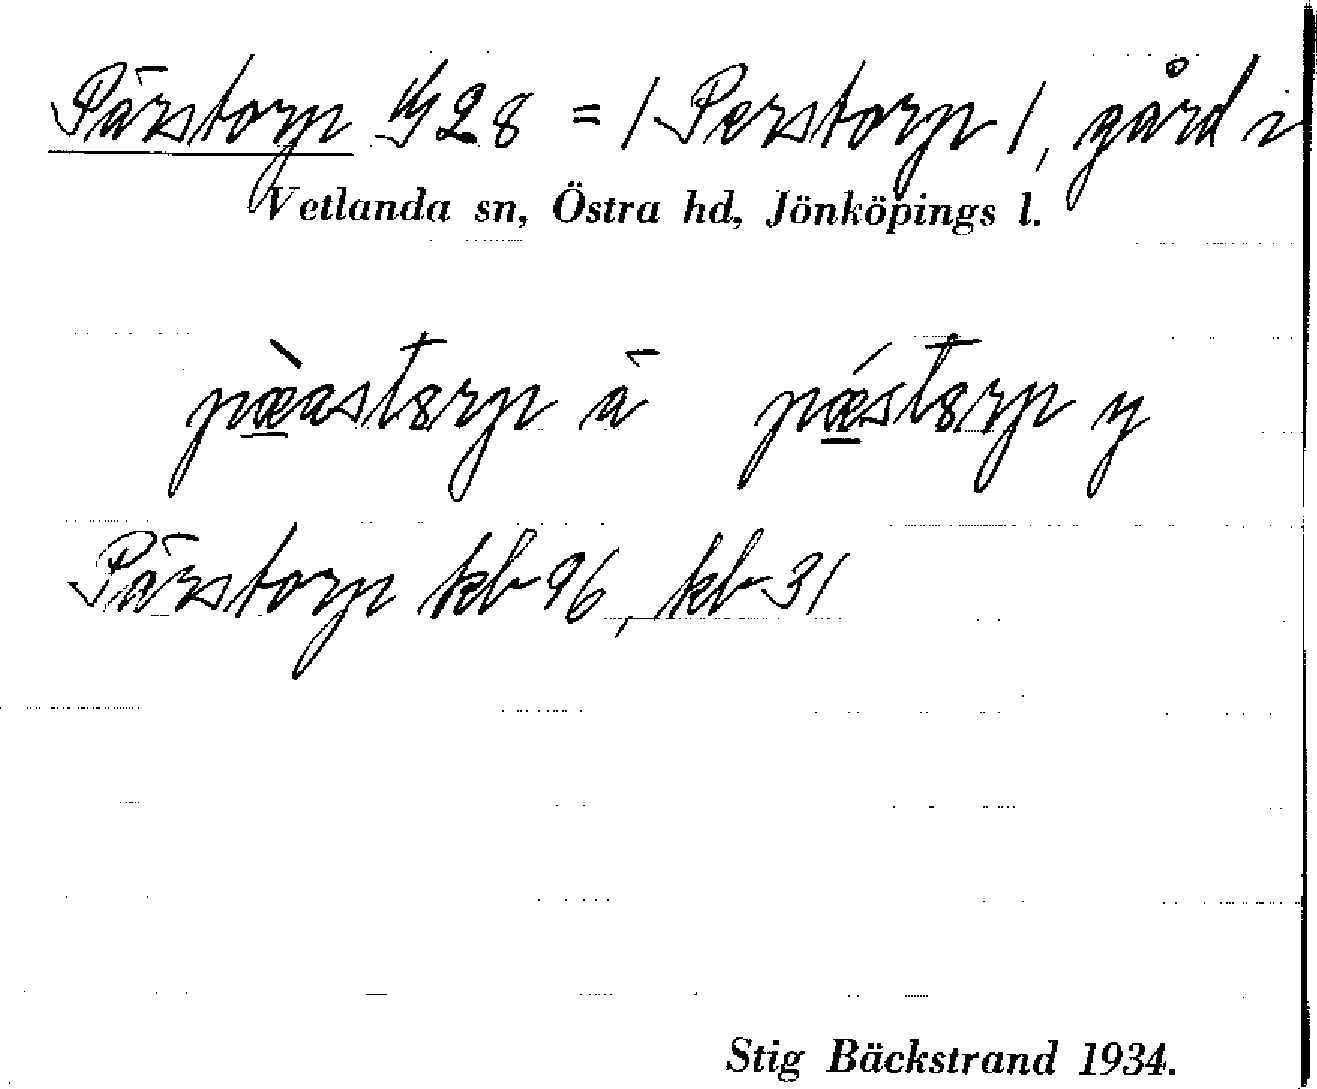 Pärstorp 28 = / Perstorp /, gård i
Vetlanda sn, Östra hd, Jönköpings l.
pæ̀astorp ä pǽstorp y
Pärstorp kb 96, kb 31
Stig Bäckstrand 1934.